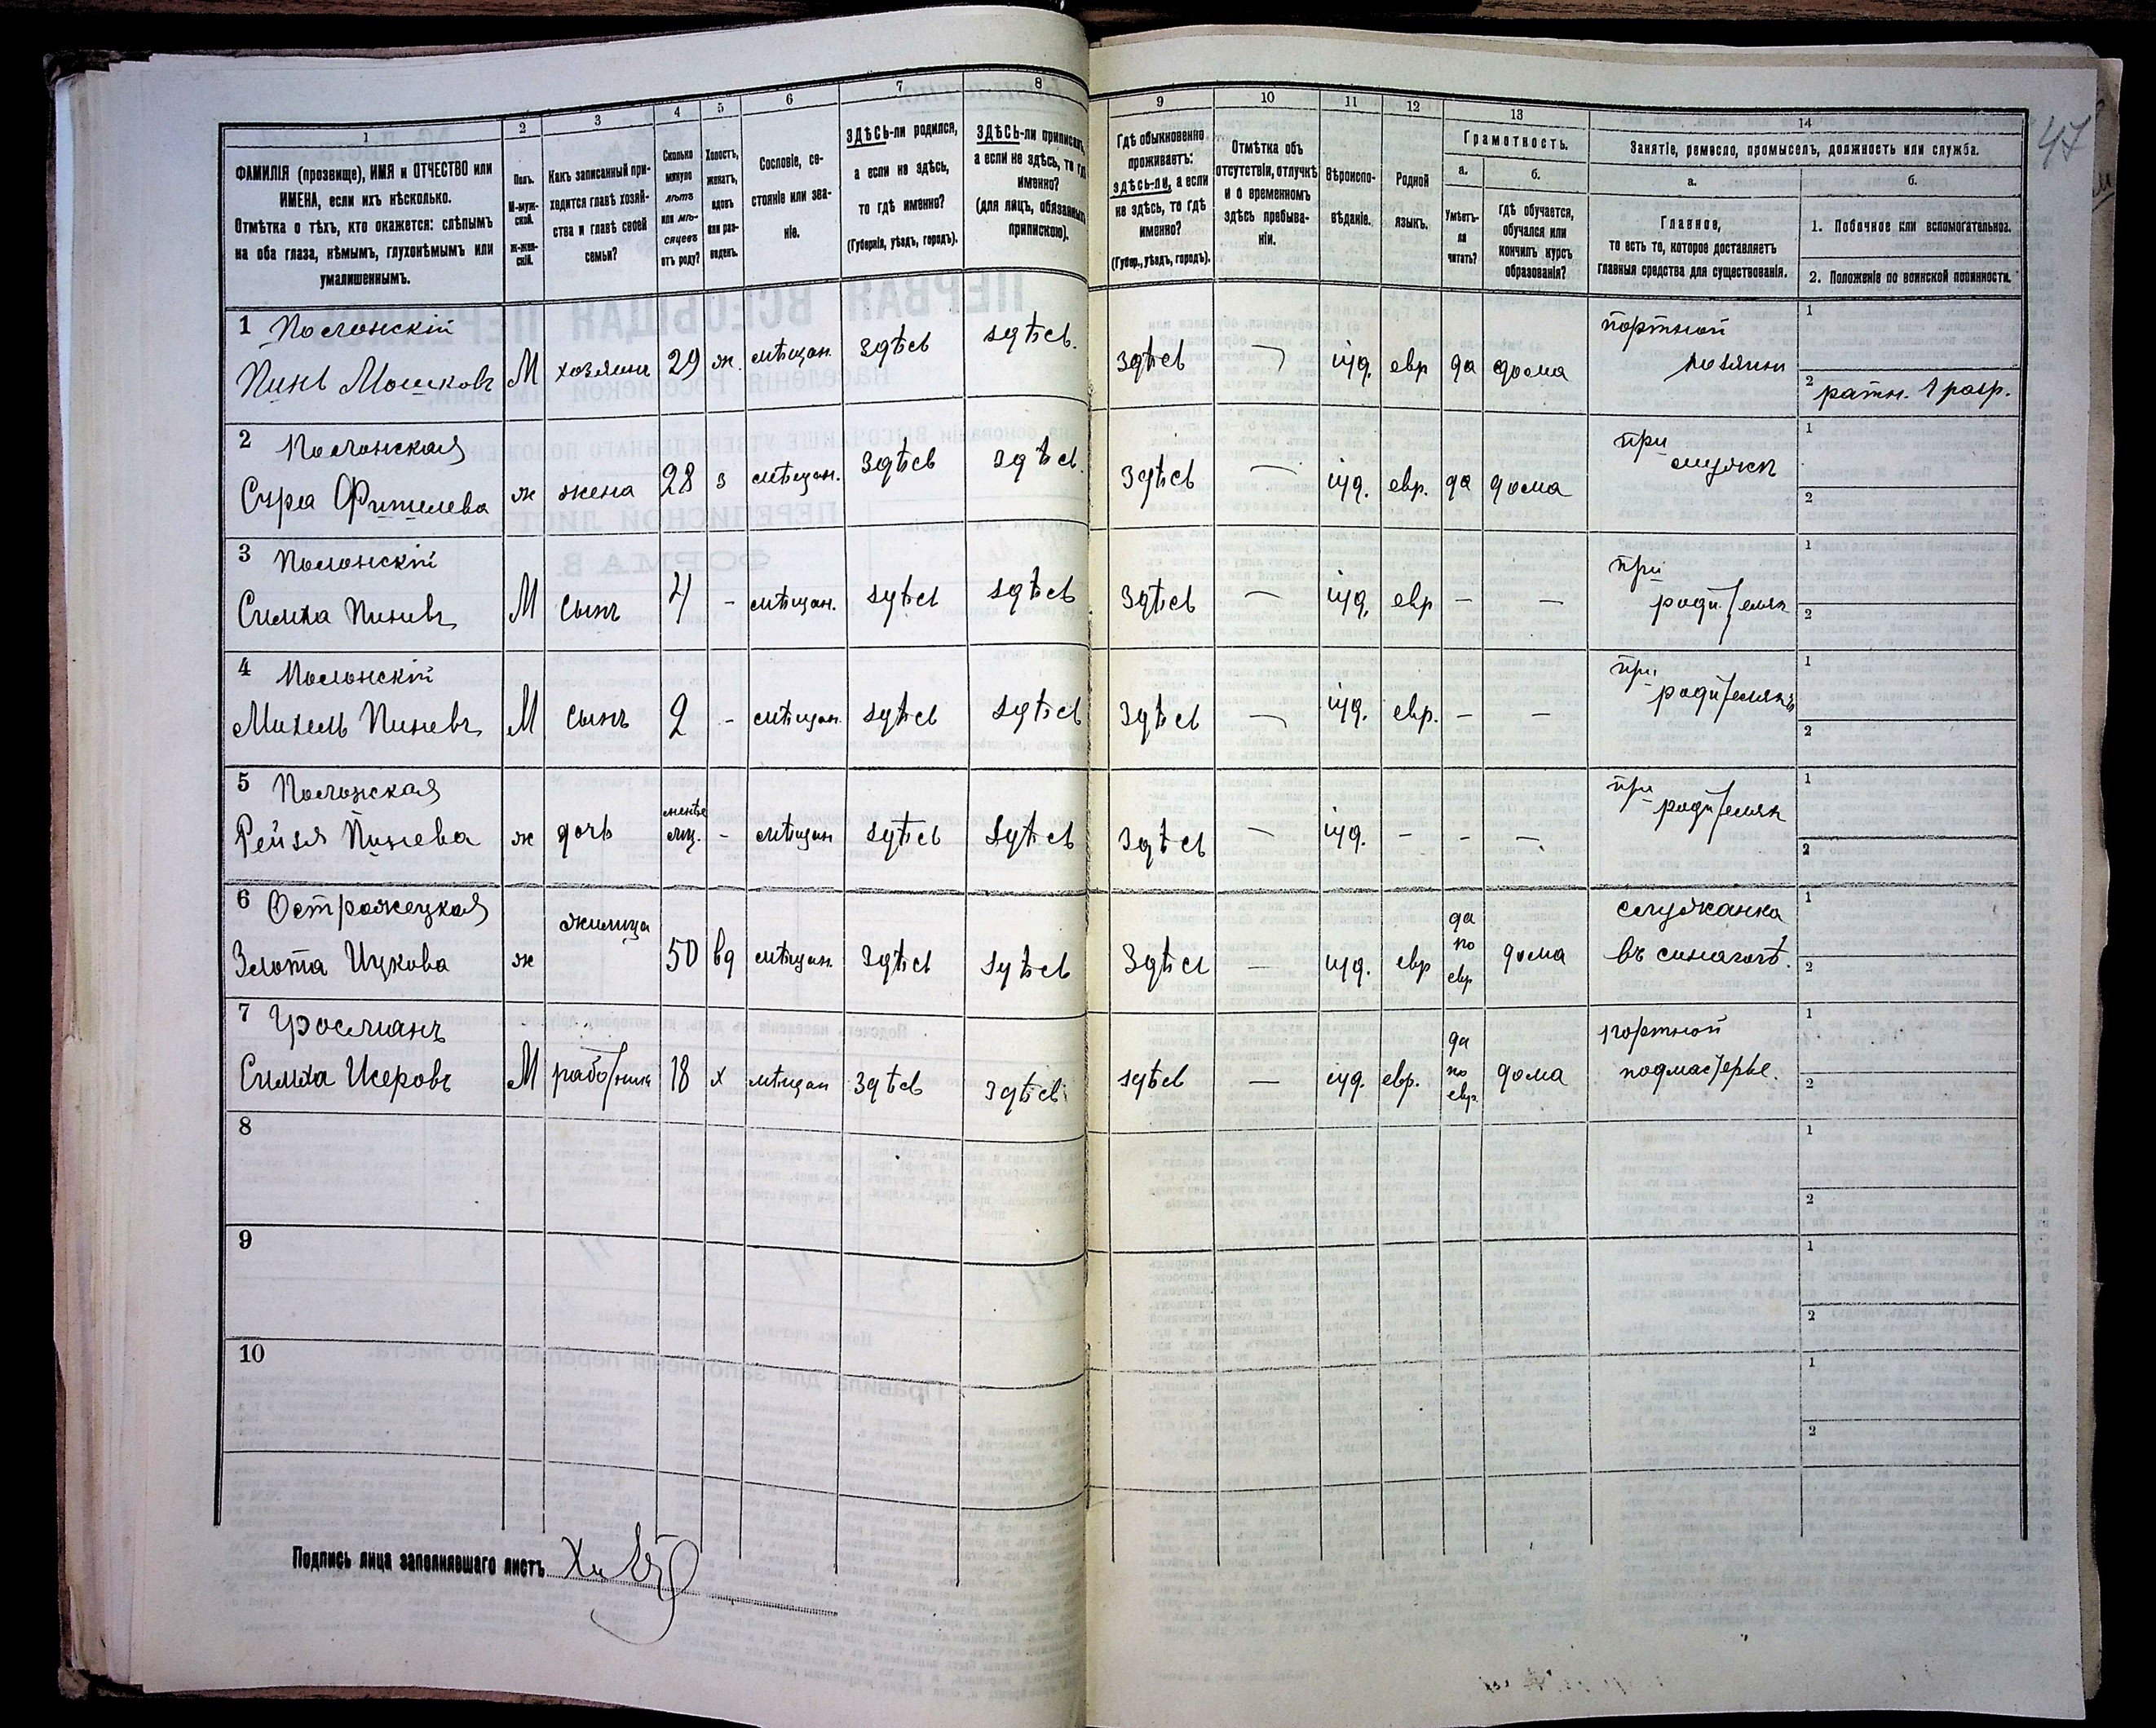 1 2 3 4 5 6 7 8 9 10 11 12 13 14
47
ФАМИЛІЯ (прозвище), ИМЯ и ОТЧЕСТВО или
ИМЕНА, если ихъ нѣсколько.
Отмѣтка о тѣхъ, кто окажется: слѣпымъ
на оба глаза, нѣмымъ, глухонѣмымъ или
умалишеннымъ.
Полъ.
М-муж-
ской.
Ж-жен-
скій.
Какъ записанный при-
ходится главѣ хозяй-
ства и главѣ своей
семьи?
Сколько
минуло
лѣтъ
или мѣ-
сяцевъ
отъ роду?
Холостъ,
женатъ,
вдовъ
или раз-
веденъ.
Сословіе, со-
стояніе или зва-
ніе.
ЗДѢСЬ-ли родился,
а если не здѣсь,
то гдѣ именно?
(Губернія, уѣздъ, городъ).
ЗДѢСЬ-ли приписанъ,
а если не здѣсь, то гдѣ
именно?
(для лицъ, обязанныхъ
припискою).
Гдѣ обыкновенно
проживаетъ:
здѣсь-ли, а если
не здѣсь, то гдѣ
именно?
(Губер., уѣздъ, городъ).
Отмѣтка объ
отсутствіи, отлучкѣ
и о временномъ
здѣсь пребыва-
ніи.
Вѣроиспо-
вѣданіе.
Родной
языкъ.
Грамотность.
а.
Умѣетъ-
ли
читать?
б.
Гдѣ обучается,
обучался или
кончилъ курсъ
образованія?
Занятіе, ремесло, промыселъ, должность или служба.
а.
Главное,
то есть то, которое доставляетъ
главныя средства для существованія.
б.
1. Побочное или вспомогательное.
2. Положеніе по воинской повинности.
1 Полонскій
Пинь Мошковъ М хозяинъ 29 ж. мѣщан. здѣсь здѣсь. здѣсь — іуд. евр да дома
портной
хозяинъ
1
2 ратн. 1 разр.
2 Полонская
Сура Фишелева ж жена 28 з мѣщан. здѣсь здѣсь. здѣсь — іуд. евр. да дома
при
мужѣ
1
2
3 Полонскій
Симха Пиневъ М сынъ 4 - мѣщан. здѣсь здѣсь здѣсь — іуд. евр — —
при
родителяхъ
1
2
4 Полонскій
Михель Пиневъ М сынъ 2 - мѣщан. здѣсь здѣсь здѣсь — іуд. евр. — —
при
родителяхъ
1
2
5 Полонская
Рейзя Пинева ж дочь менѣе мц. - мѣщан здѣсь здѣсь здѣсь — іуд. - - —
при
родителяхъ
1
2
6 Остражецкая
Злота Ицкова ж жилица 50 вд мѣщан. здѣсь здѣсь здѣсь — іуд. евр да по евр дома
служанка
въ синагогѣ.
1
2
7 Уросманъ
Симха Исеровъ М работникъ 18 х мѣщан здѣсь здѣсь здѣсь — іуд. евр. да по евр. дома
портной
подмастерье.
1
2
8
1
2
9
1
2
10
1
2
Подпись лица заполнявшаго листъ